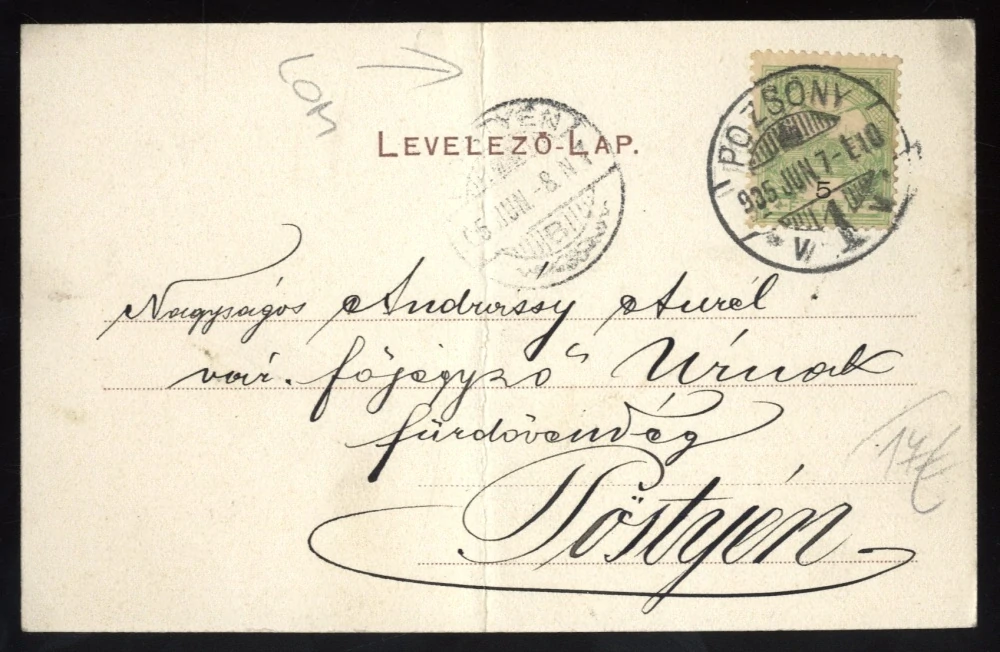 LOM
LEVELEZŐ-LAP.
POZSONY
905 JUN 7-É10
1
5
YÉN
05 JUN -8 N
Nagyságos Andrássy Aurél
vár. főjegyző Úrnak
fürdővendég
Pöstyén
17€